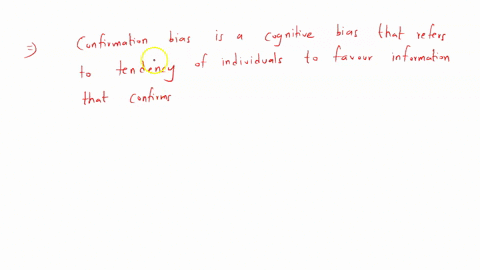 ⇒ Confirmation bias is a cognitive bias that refers
to tendency of individuals to favour information
that confirms